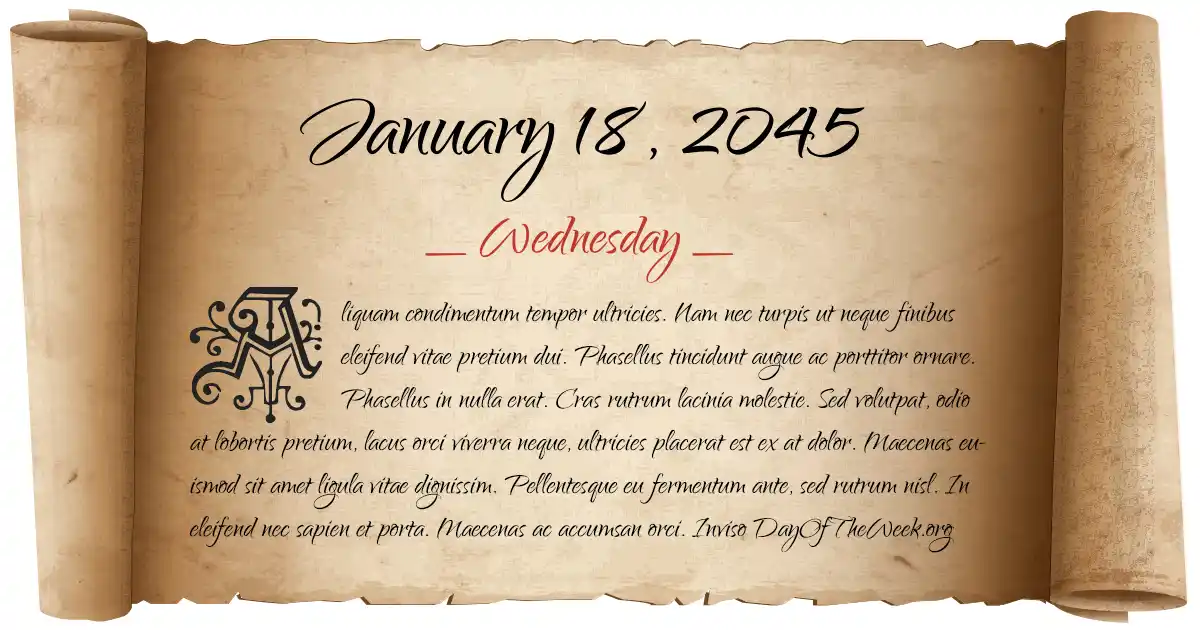 January 18, 2045
Wednesday
Aliquam condimentum tempor ultricies. Nam nec turpis ut neque finibus
eleifend vitae pretium dui. Phasellus tincidunt augue ac porttitor ornare.
Phasellus in nulla erat. Cras rutrum lacinia molestie. Sed volutpat, odio
at lobortis pretium, lacus orci viverra neque, ultricies placerat est ex at dolor. Maecenas eu-
ismod sit amet ligula vitae dignissim. Pellentesque eu fermentum ante, sed rutrum nisl. In
eleifend nec sapien et porta. Maecenas ac accumsan orci. Inviso DayOfTheWeek.org